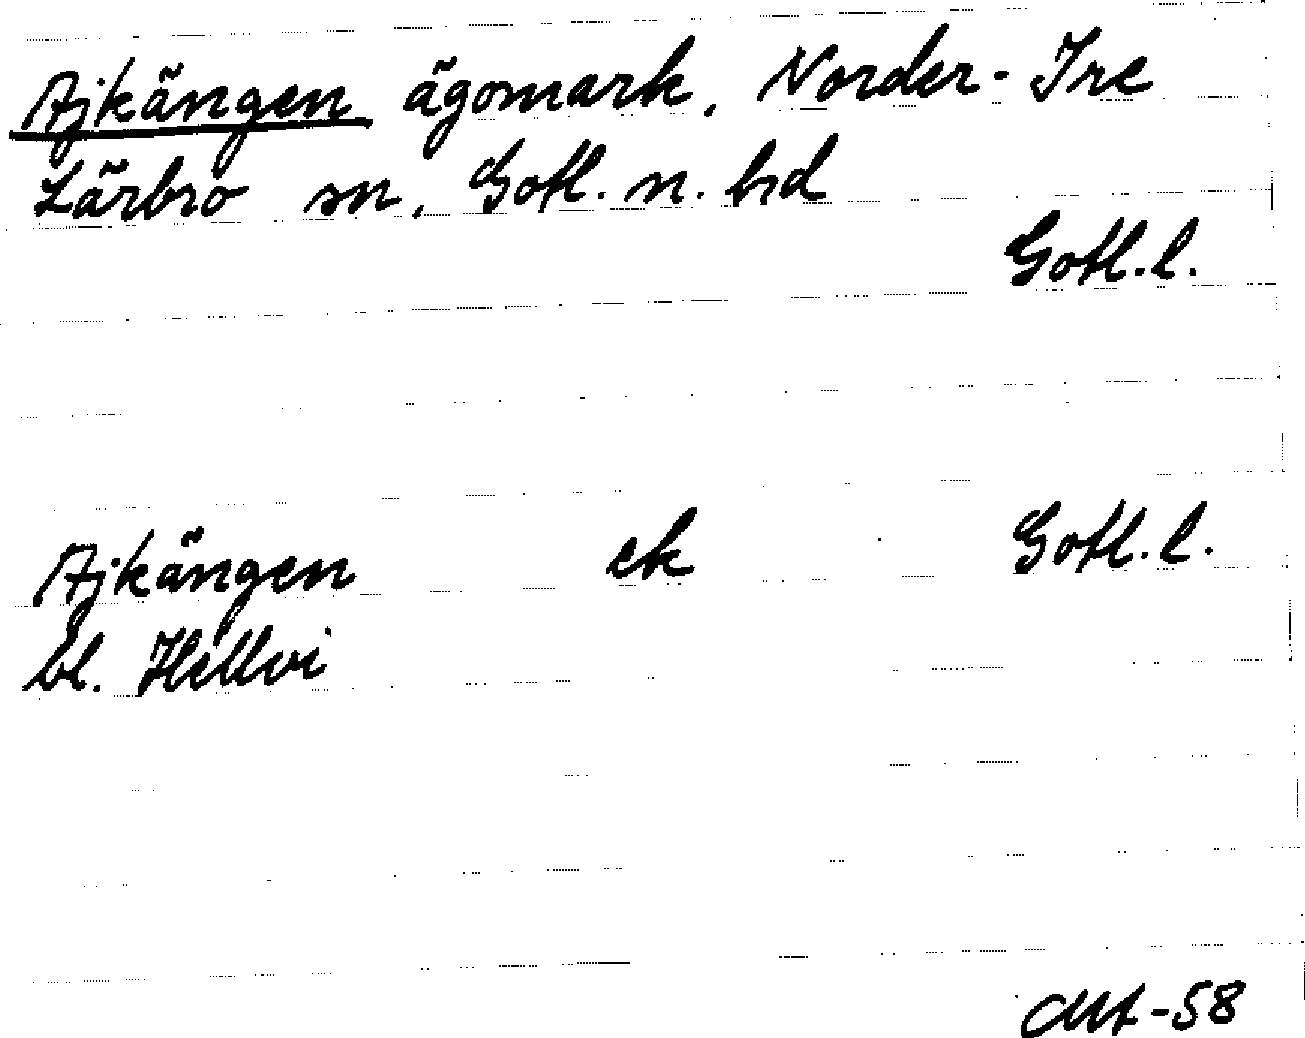 Ajkängen ägomark, Norder-Ire
Lärbro sn, Gotl. n. hd
Gotl. l.
Ajkängen ek Gotl. l.
bl. Hellvi
-58